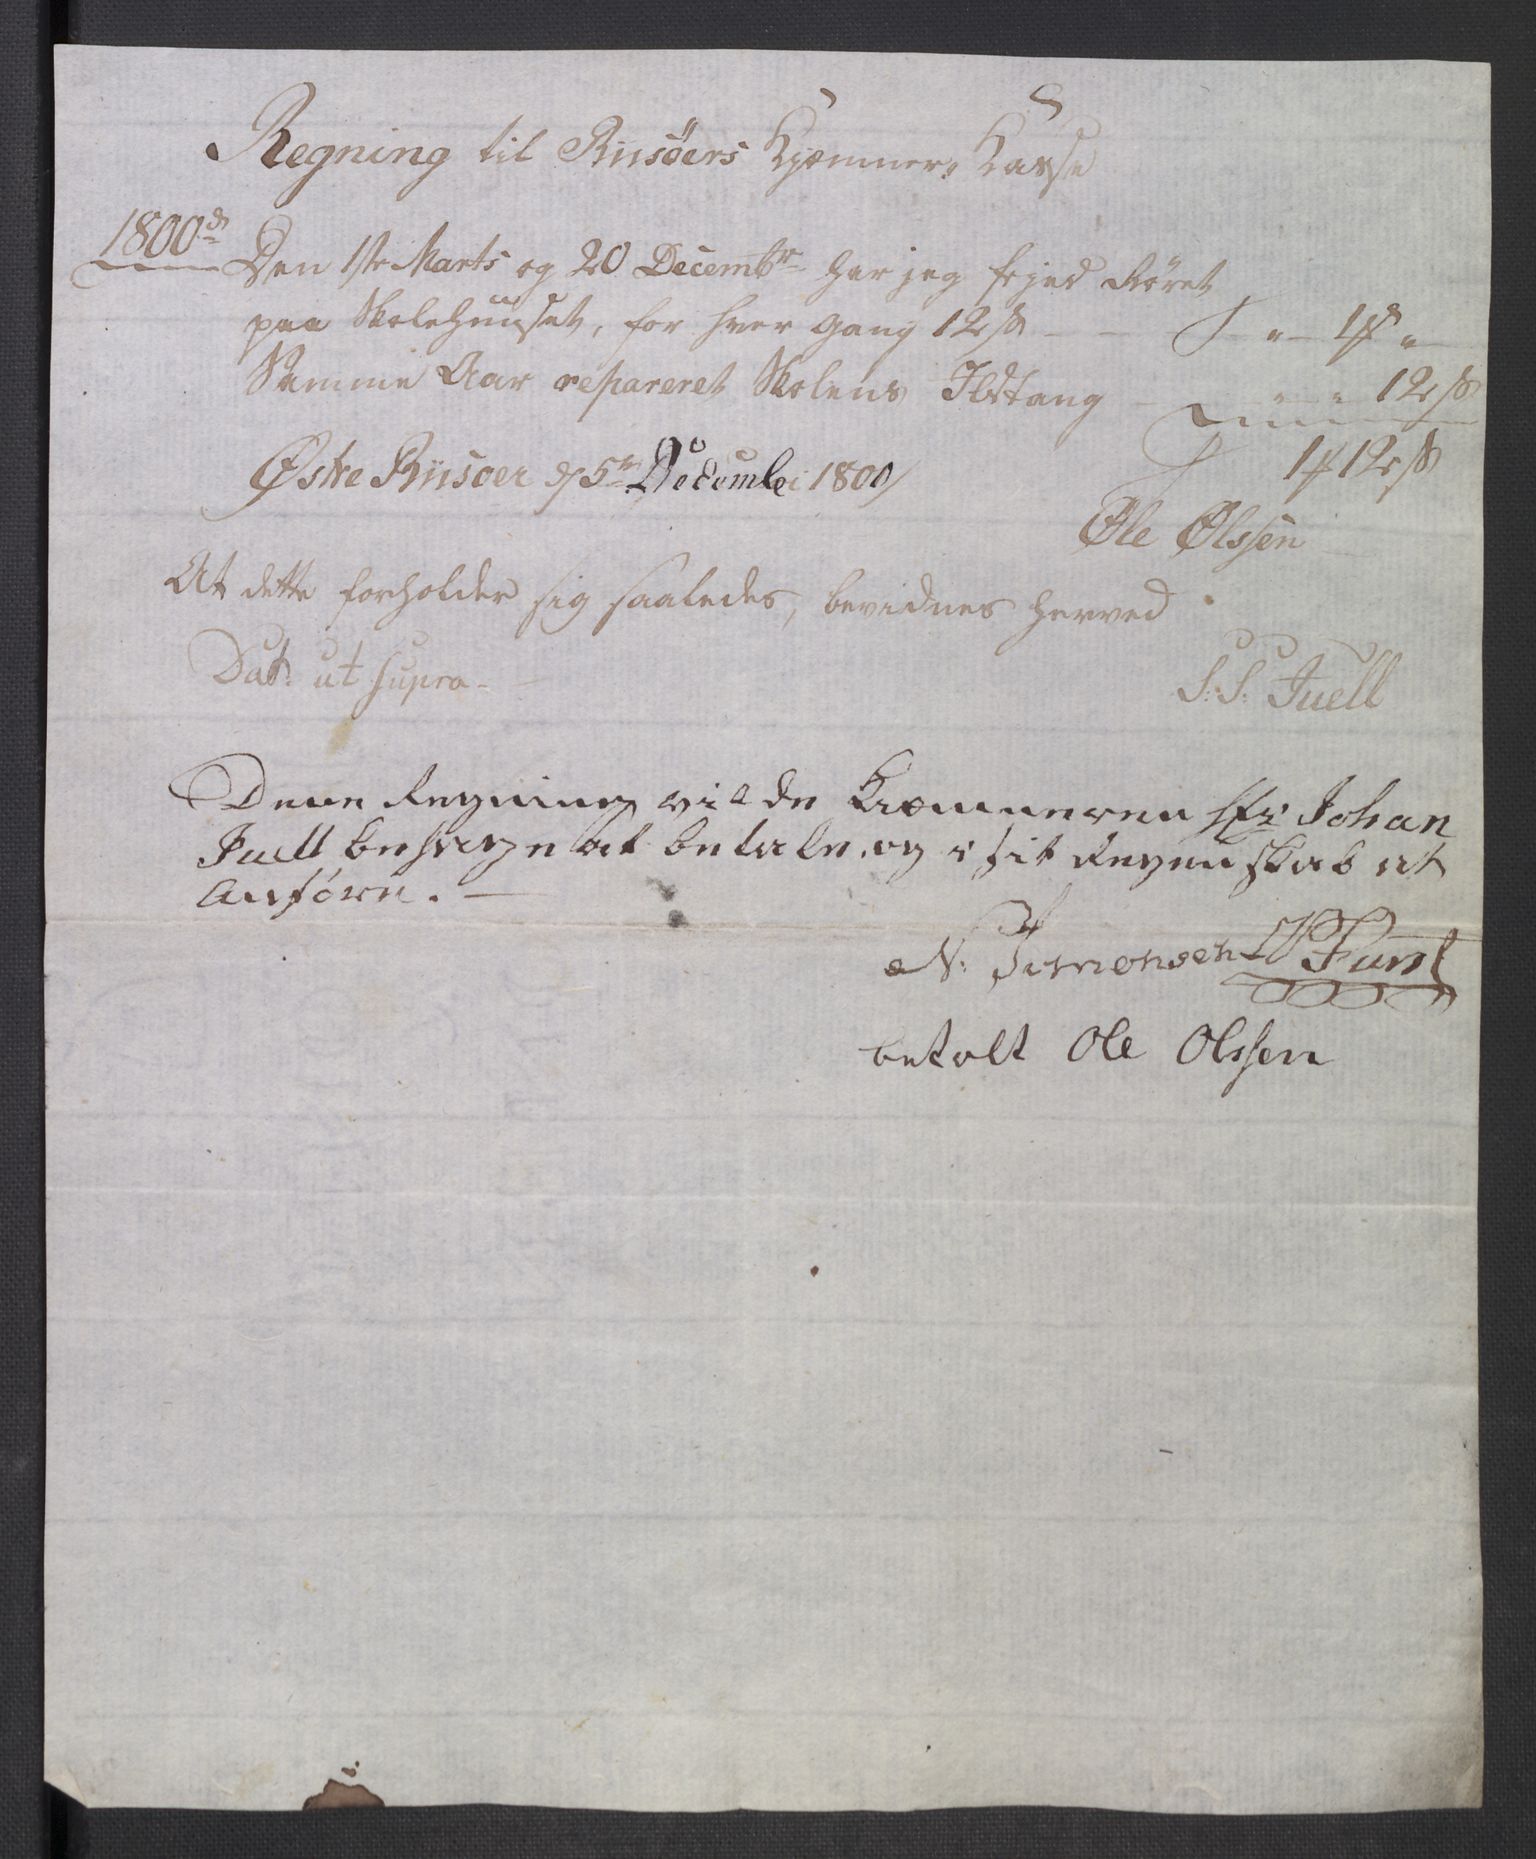 Regning til Riisöers Kjæmner, Kasse
1800de
Den 1ste Marts og 20 Decembr har jeg fejed Röret
paa Skolehuuset, for hver gang 12 ß - - " - 1 # "
Samme Aar repareret Skolens Ildtang - " - " 12 ß
1 # 12 ß
Østre Riisoer d 5te December 1800/
Ole Olssen
At dette forholder sig saaledes, bevidnes herved
Dat: ut supra -
S: S: Juell
Denne Regning vilde Kiæmneren Hr Johan
Juell behage at betale, og i sit Regenskab at
Anföre. -
N: Simonsen Furst
betalt Ole Olssen